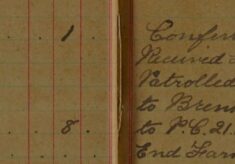 1
Confin
Received
Patrolled
to Bren
8 to P.C. 21.
End Farm